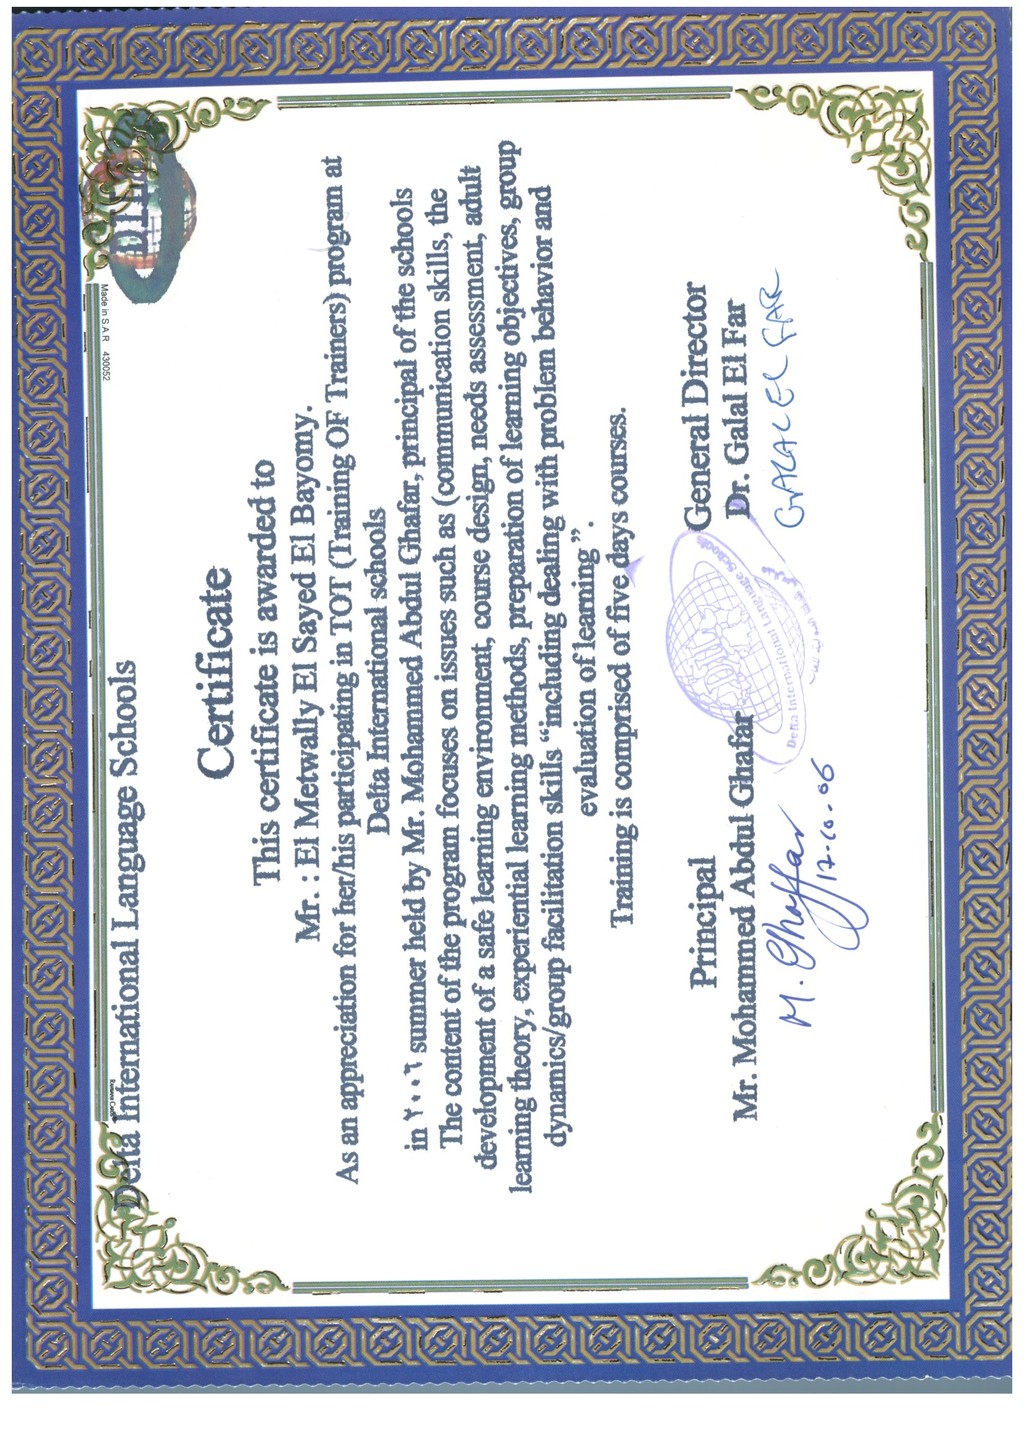 Delta International Language Schools
Certificate
This certificate is awarded to
Mr. : El Metwally El Sayed El Bayomy.
As an appreciation for her/his participating in TOT (Training OF Trainers) program at
Delta International schools
in ٢٠٠٦ summer held by Mr. Mohammed Abdul Ghafar, principal of the schools
The content of the program focuses on issues such as (communication skills, the
development of a safe learning environment, course design, needs assessment, adult
learning theory, experiential learning methods, preparation of learning objectives, group
dynamics/group facilitation skills “including dealing with problem behavior and
evaluation of learning”.
Training is comprised of five days courses.
Principal General Director
Mr. Mohammed Abdul Ghafar Dr. Galal El Far
M. Ghaffar GALAL EL FAR
17-10-06
Delta International Language Schools
Made in S.A.R 430052